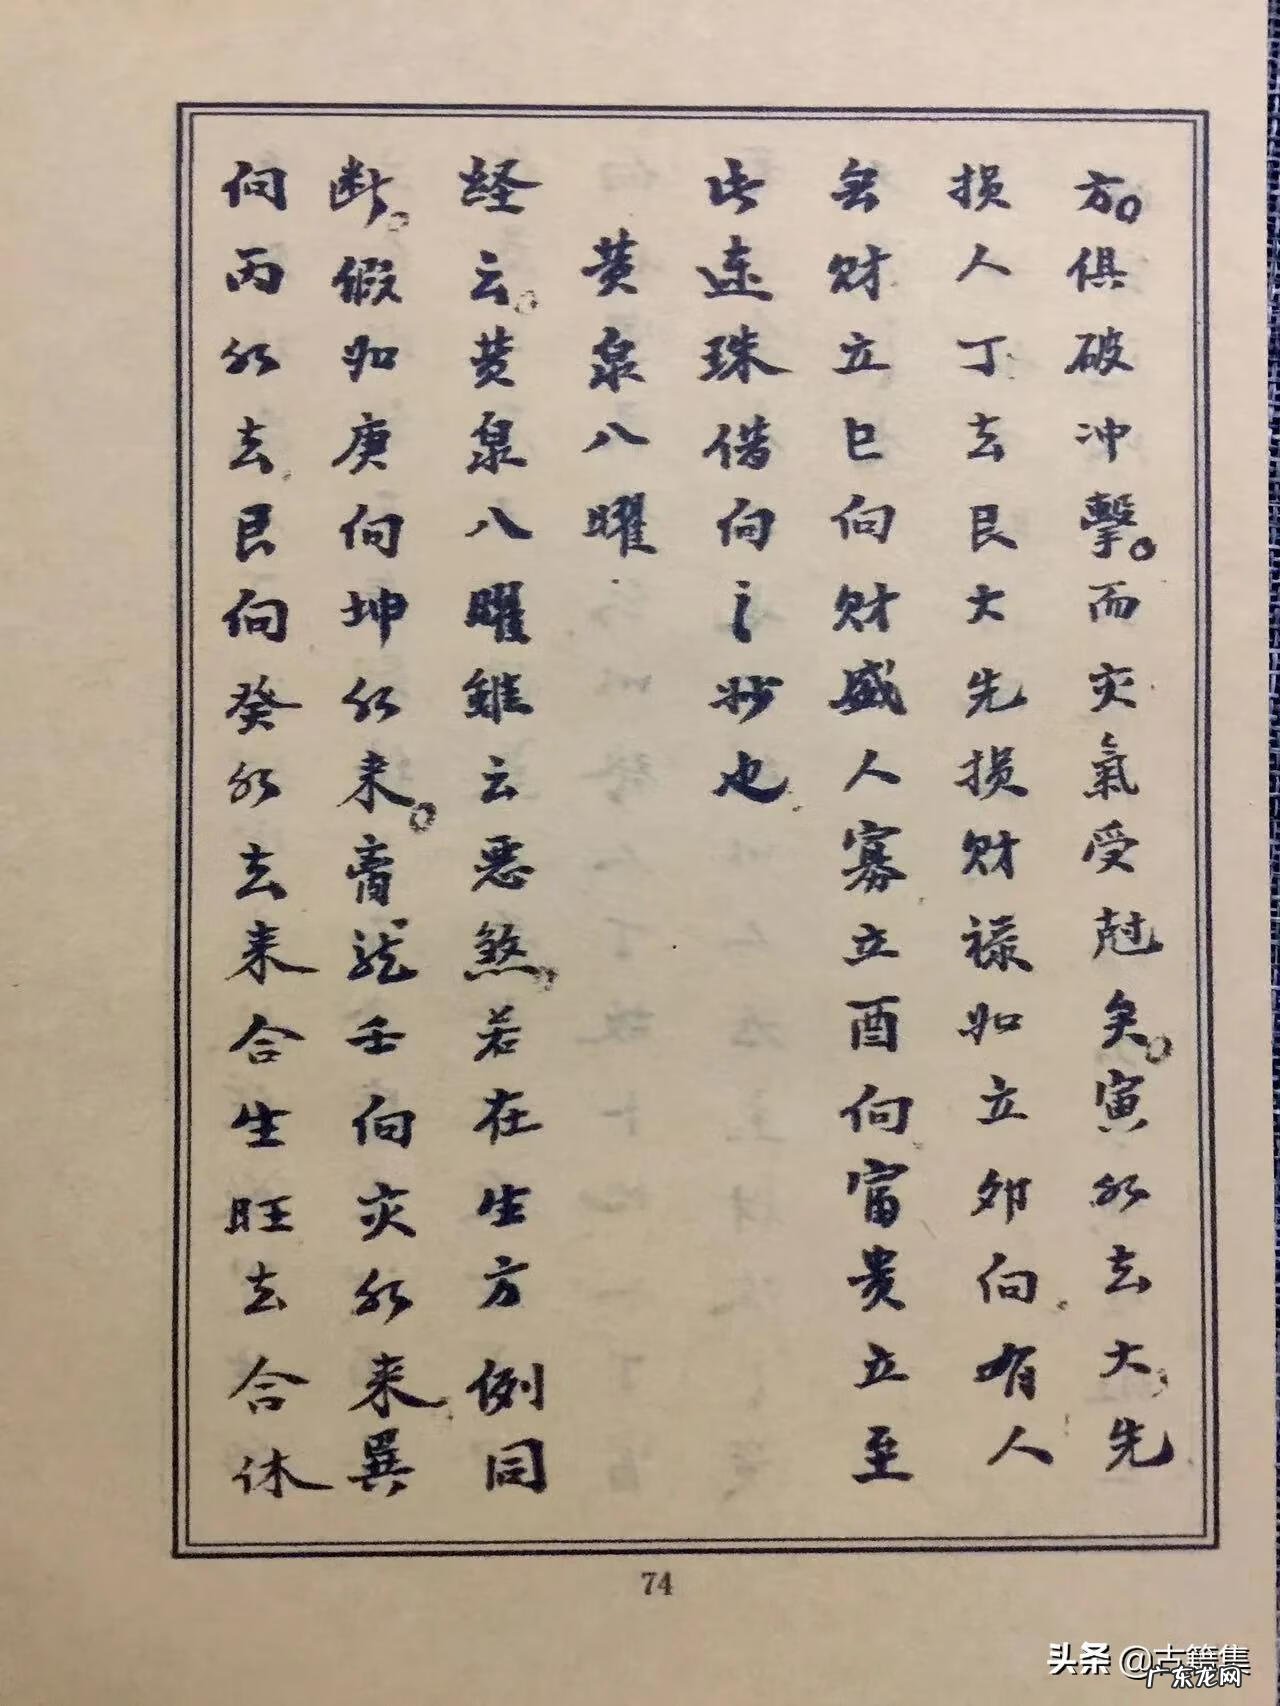 方。俱破冲擊。而灾氣受尅矣。寅水去大先
损人丁去艮大先损财禄如立卯向有人
无财立巳向财盛人寡立酉向富贵立至
此连珠借向之妙也
黄泉八曜
经云。黄泉八曜虽云恶煞。若在生方例同
断。假如庚向坤水来。膏龙壬向亥水来巽
向丙水去艮向癸水去来合生旺去合休
74
头条 @古籍集
广东龙网